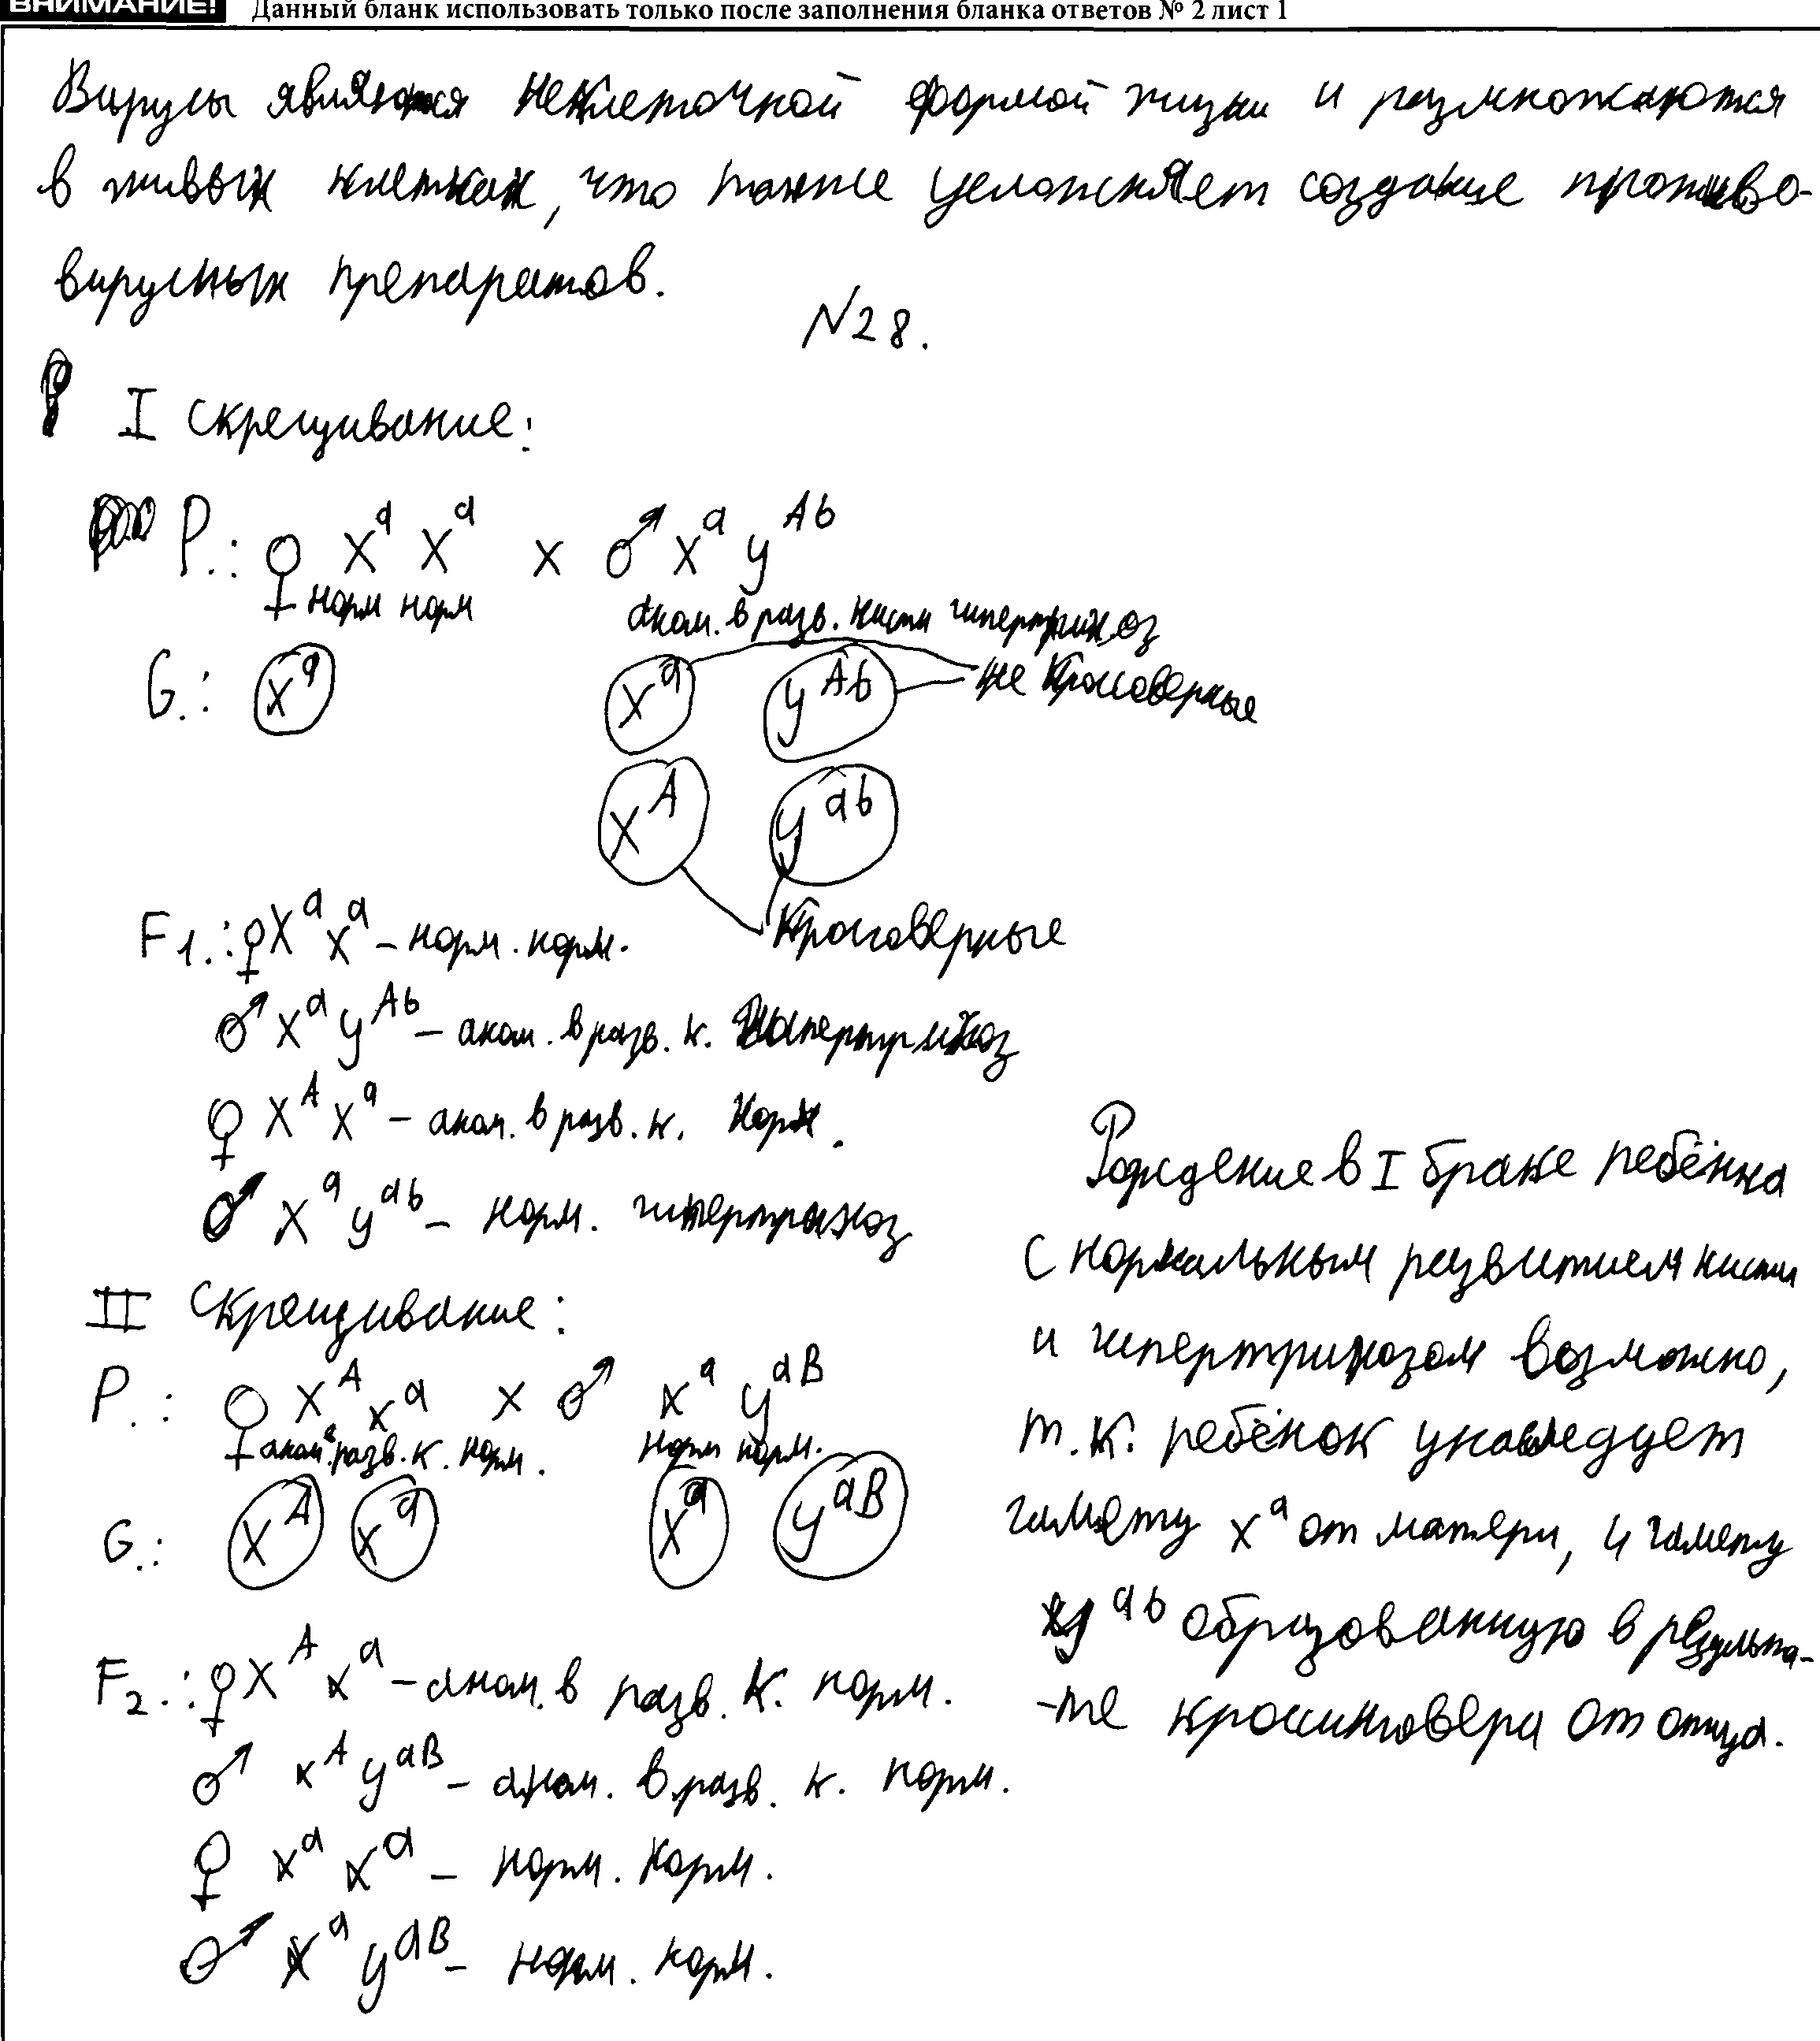 ВНИМАНИЕ! Данный бланк использовать только после заполнения бланка ответов № 2 лист 1
Вирусы являются неклеточной формой жизни и размножаются
в живых клетках, что также усложняет создание противо-
вирусных препаратов.
N28.
I скрещивание:
P.: ♀ X^a X^a x ♂ X^a y^Ab
норм норм аном. в разв. кисти гипертрихоз
G.: X^a X^a y^Ab не кроссоверные
X^A y^ab
кроссоверные
F1.: ♀ X^a X^a - норм. норм.
♂ X^a y^Ab - аном. в разв. к. гипертрихоз
♀ X^A X^a - аном. в разв. к. норм.
♂ X^a y^ab - норм. гипертрихоз
II Скрещивание:
P.: ♀ X^A X^a x ♂ X^a y^aB
аном. в разв. к. норм. норм норм.
G.: X^A X^a X^a y^aB
F2.: ♀ X^A X^a - аном. в разв. к. норм.
♂ X^A y^aB - аном. в разв. к. норм.
♀ X^a X^a - норм. норм.
♂ X^a y^aB - норм. норм.
Рождение в I браке ребёнка
с нормальным развитием кисти
и гипертрихозом возможно,
т.к. ребёнок унаследует
гамету X^a от матери, и гамету
y^ab образованную в результа-
-те кроссинговера от отца.